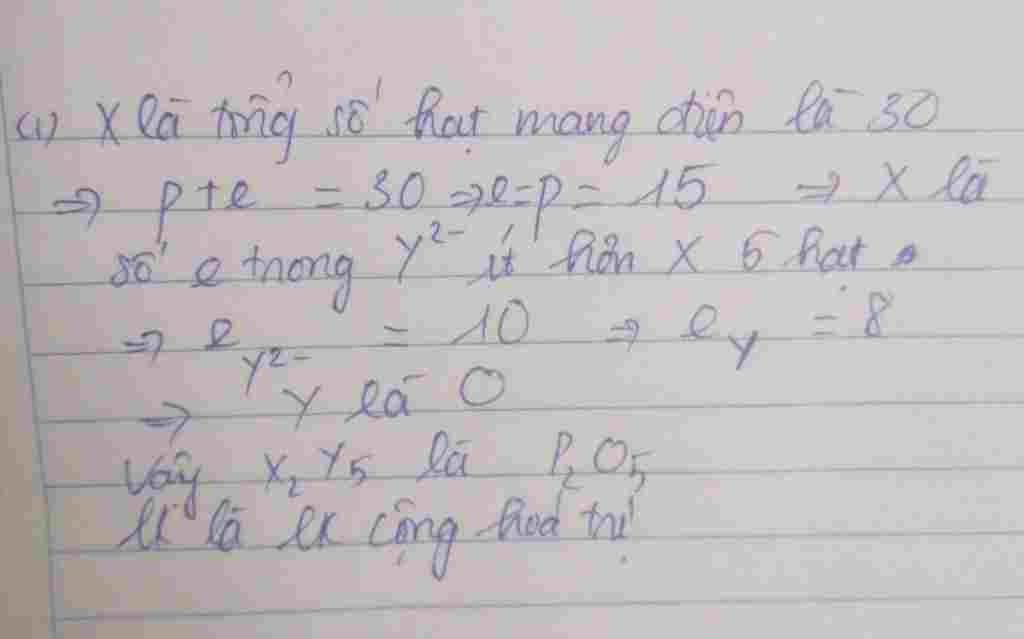 a) X là tổng số hạt mang điện là 30
=> p+e = 30 => e=p = 15 => X là
số e trong Y²⁻ ít hơn X 5 hạt
=> e_Y²⁻ = 10 => e_Y = 8
=> Y là O
Vậy X₂Y₅ là P₂O₅
lk là lk cộng hoá trị